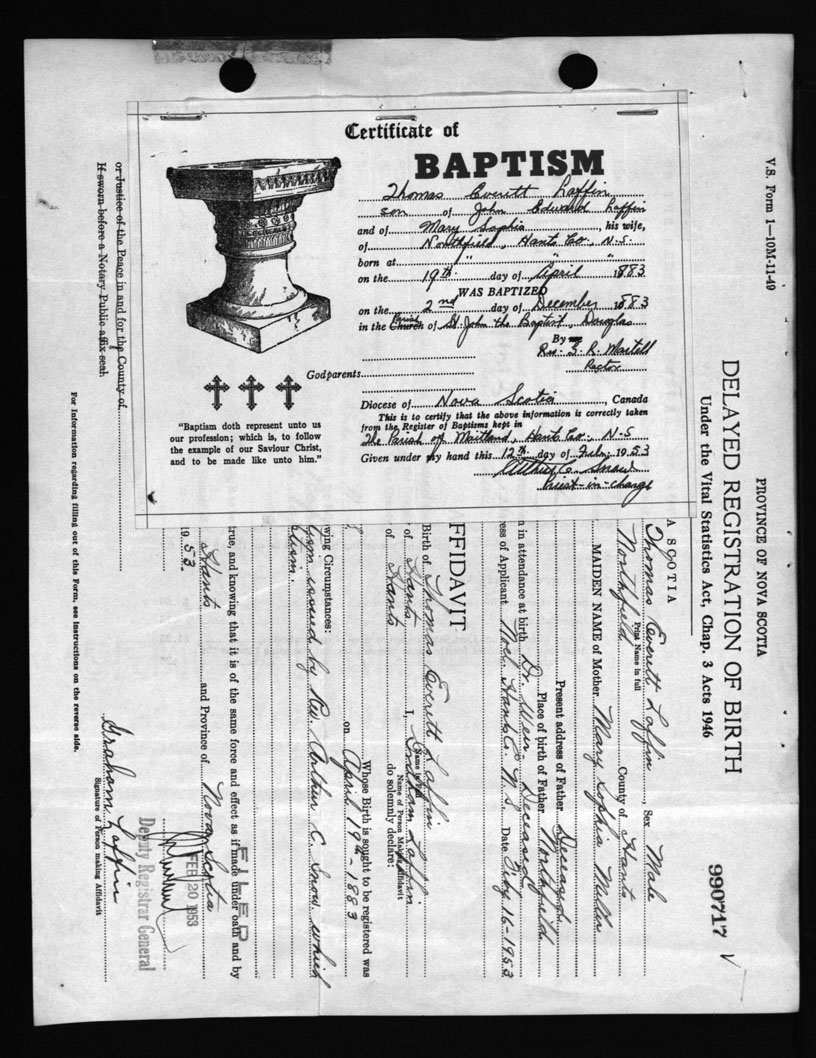 Certificate of
BAPTISM
Thomas Everitt Laffin
son of John Edward Laffin
and of Mary Sophia, his wife,
of Northfield, Hants Co., N.S.
born at " " "
on the 19th. day of April 1883
WAS BAPTIZED
on the 2nd day of December 1883
in the Parish Church of St. John the Baptist, Douglas
By Rev. G. R. Martell
Rector
Godparents
Diocese of Nova Scotia, Canada
This is to certify that the above information is correctly taken
from the Register of Baptisms kept in
The Parish of Maitland, Hants Co., N.S
Given under my hand this 12th. day of Feb., 1953
Arthur C. Snow
Priest-in-charge
"Baptism doth represent unto us
our profession; which is, to follow
the example of our Saviour Christ,
and to be made like unto him."
V.S. Form 1—10M-11-49
PROVINCE OF NOVA SCOTIA
DELAYED REGISTRATION OF BIRTH
Under the Vital Statistics Act, Chap. 3 Acts 1946
990717
A SCOTIA
Thomas Everett Laffin, Sex Male
Print Name in full
Northfield County of Hants
MAIDEN NAME of Mother Mary Sophia Miller
Present address of Father Deceased
Place of birth of Father Northfield
n in attendance at birth Dr. Weir Deceased
ess of Applicant Noel Hants Co. N.S. Date Feby 16-1953
FFIDAVIT
Birth of Thomas Everett Laffin
of Hants I, Graham Laffin
Name of Person Making Affidavit
of Hants do solemnly declare:
Whose Birth is sought to be registered was
on April 19th-1883
wing Circumstances:
issued by Rev. Arthur C. Snow which
rue, and knowing that it is of the same force and effect as if made under oath and by
FILED
Hants and Province of Nova Scotia
1953.
FEB 20 1953
Deputy Registrar General
Graham Laffin
Signature of Person making Affidavit
or Justice of the Peace in and for the County of
If sworn before a Notary Public affix seal.
For information regarding filling out of this Form, see instructions on the reverse side.